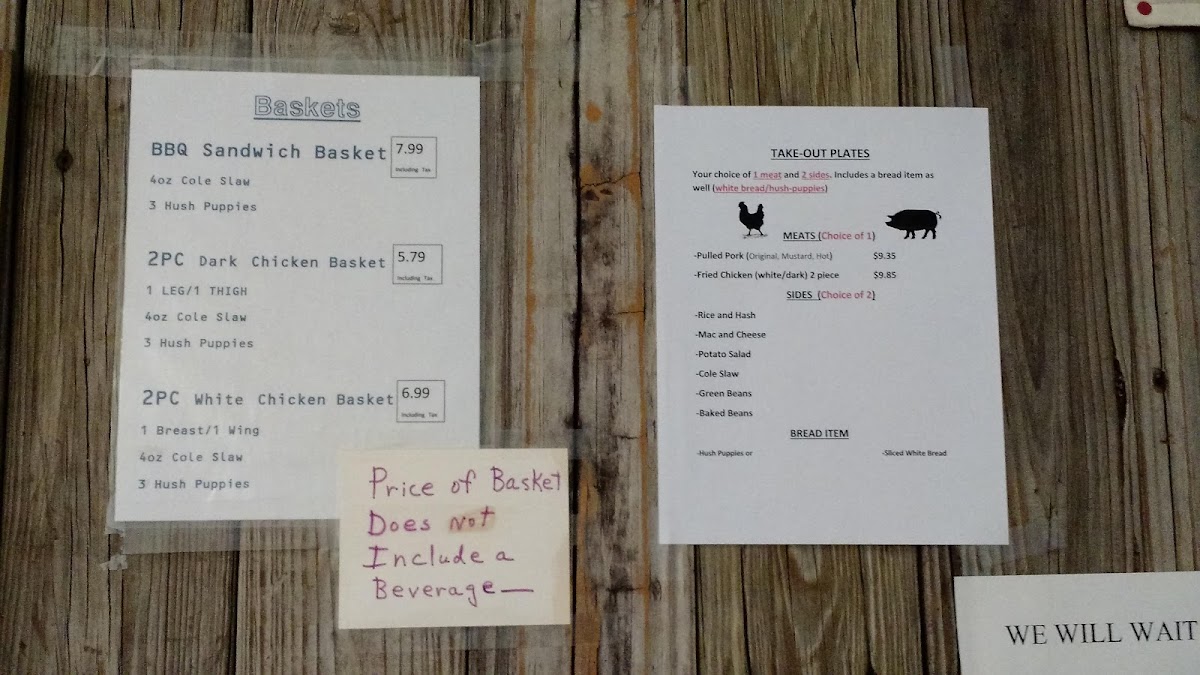 Baskets
BBQ Sandwich Basket 7.99
Including Tax
4oz Cole Slaw
3 Hush Puppies
2PC Dark Chicken Basket 5.79
Including Tax
1 LEG/1 THIGH
4oz Cole Slaw
3 Hush Puppies
2PC White Chicken Basket 6.99
Including Tax
1 Breast/1 Wing
4oz Cole Slaw
3 Hush Puppies
Price of Basket
Does Not
Include a
Beverage—
TAKE-OUT PLATES
Your choice of 1 meat and 2 sides. Includes a bread item as
well (white bread/hush-puppies)
MEATS (Choice of 1)
-Pulled Pork (Original, Mustard, Hot) $9.35
-Fried Chicken (white/dark) 2 piece $9.85
SIDES (Choice of 2)
-Rice and Hash
-Mac and Cheese
-Potato Salad
-Cole Slaw
-Green Beans
-Baked Beans
BREAD ITEM
-Hush Puppies or -Sliced White Bread
WE WILL WAIT